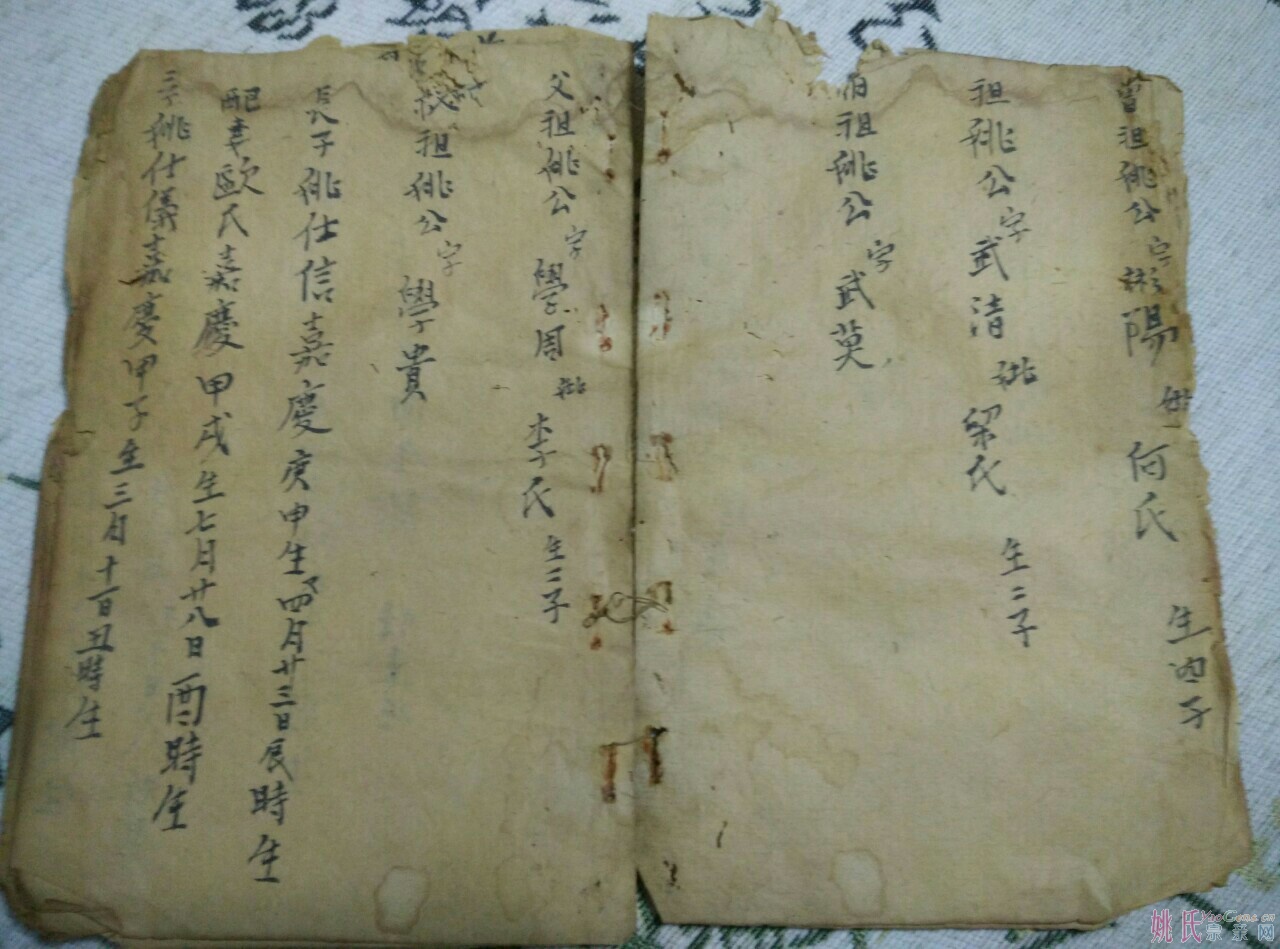 曾祖姚公字彬陽 妣何氏 生四子
祖姚公字武清 妣梁氏 生二子
伯祖姚公字武英
父祖姚公字學周 妣李氏 生二子
叔祖姚公字學貴
長子姚仕信嘉慶庚申生四月廿三日辰時生
配妻歐氏嘉慶甲戌生七月廿八日酉時生
三子姚仕儀嘉慶甲子生三月十一日丑時生
姚氏宗亲网